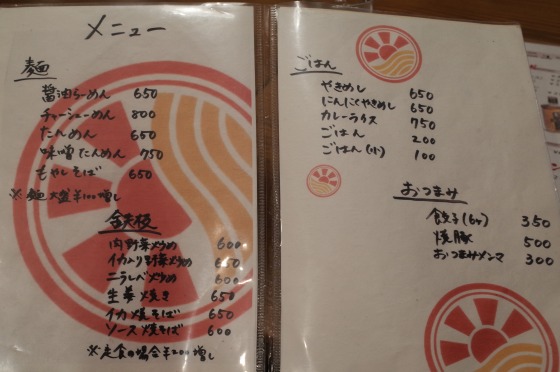 メニュー
麺
醤油らーめん 650
チャーシューめん 800
たんめん 650
味噌たんめん 750
もやしそば 650
※ 麺大盛¥100増し
鉄板
肉野菜炒め 600
イカ入り野菜炒め 650
ニラレバ炒め 600
生姜焼き 650
イカ焼そば 650
ソース焼そば 600
※定食の場合¥200増し
ごはん
やきめし 650
にんにくやきめし 650
カレーライス 750
ごはん 200
ごはん(小) 100
おつまみ
餃子(6ヶ) 350
焼豚 500
おつまみメンマ 300